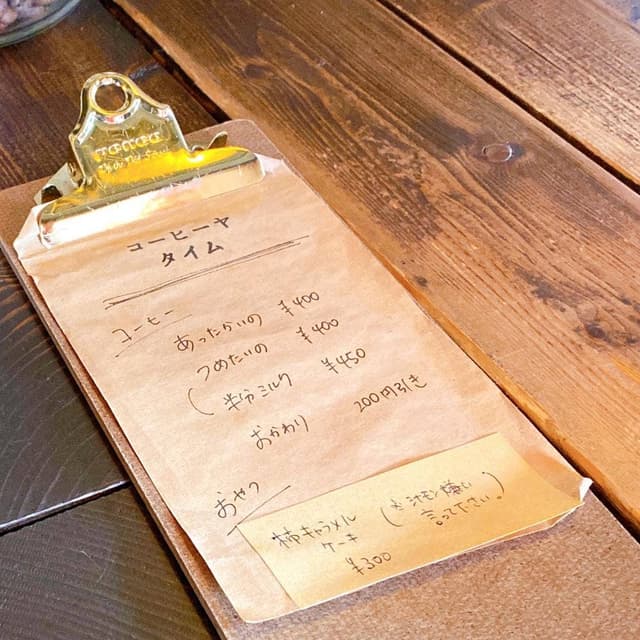 コーヒーヤ
タイム
コーヒー
あったかいの ¥400
つめたいの ¥400
( 半分ミルク ¥450
おかわり 200円引き
おやつ
柿キャラメル
ケーキ
¥300
嫌い
言って下さい。)